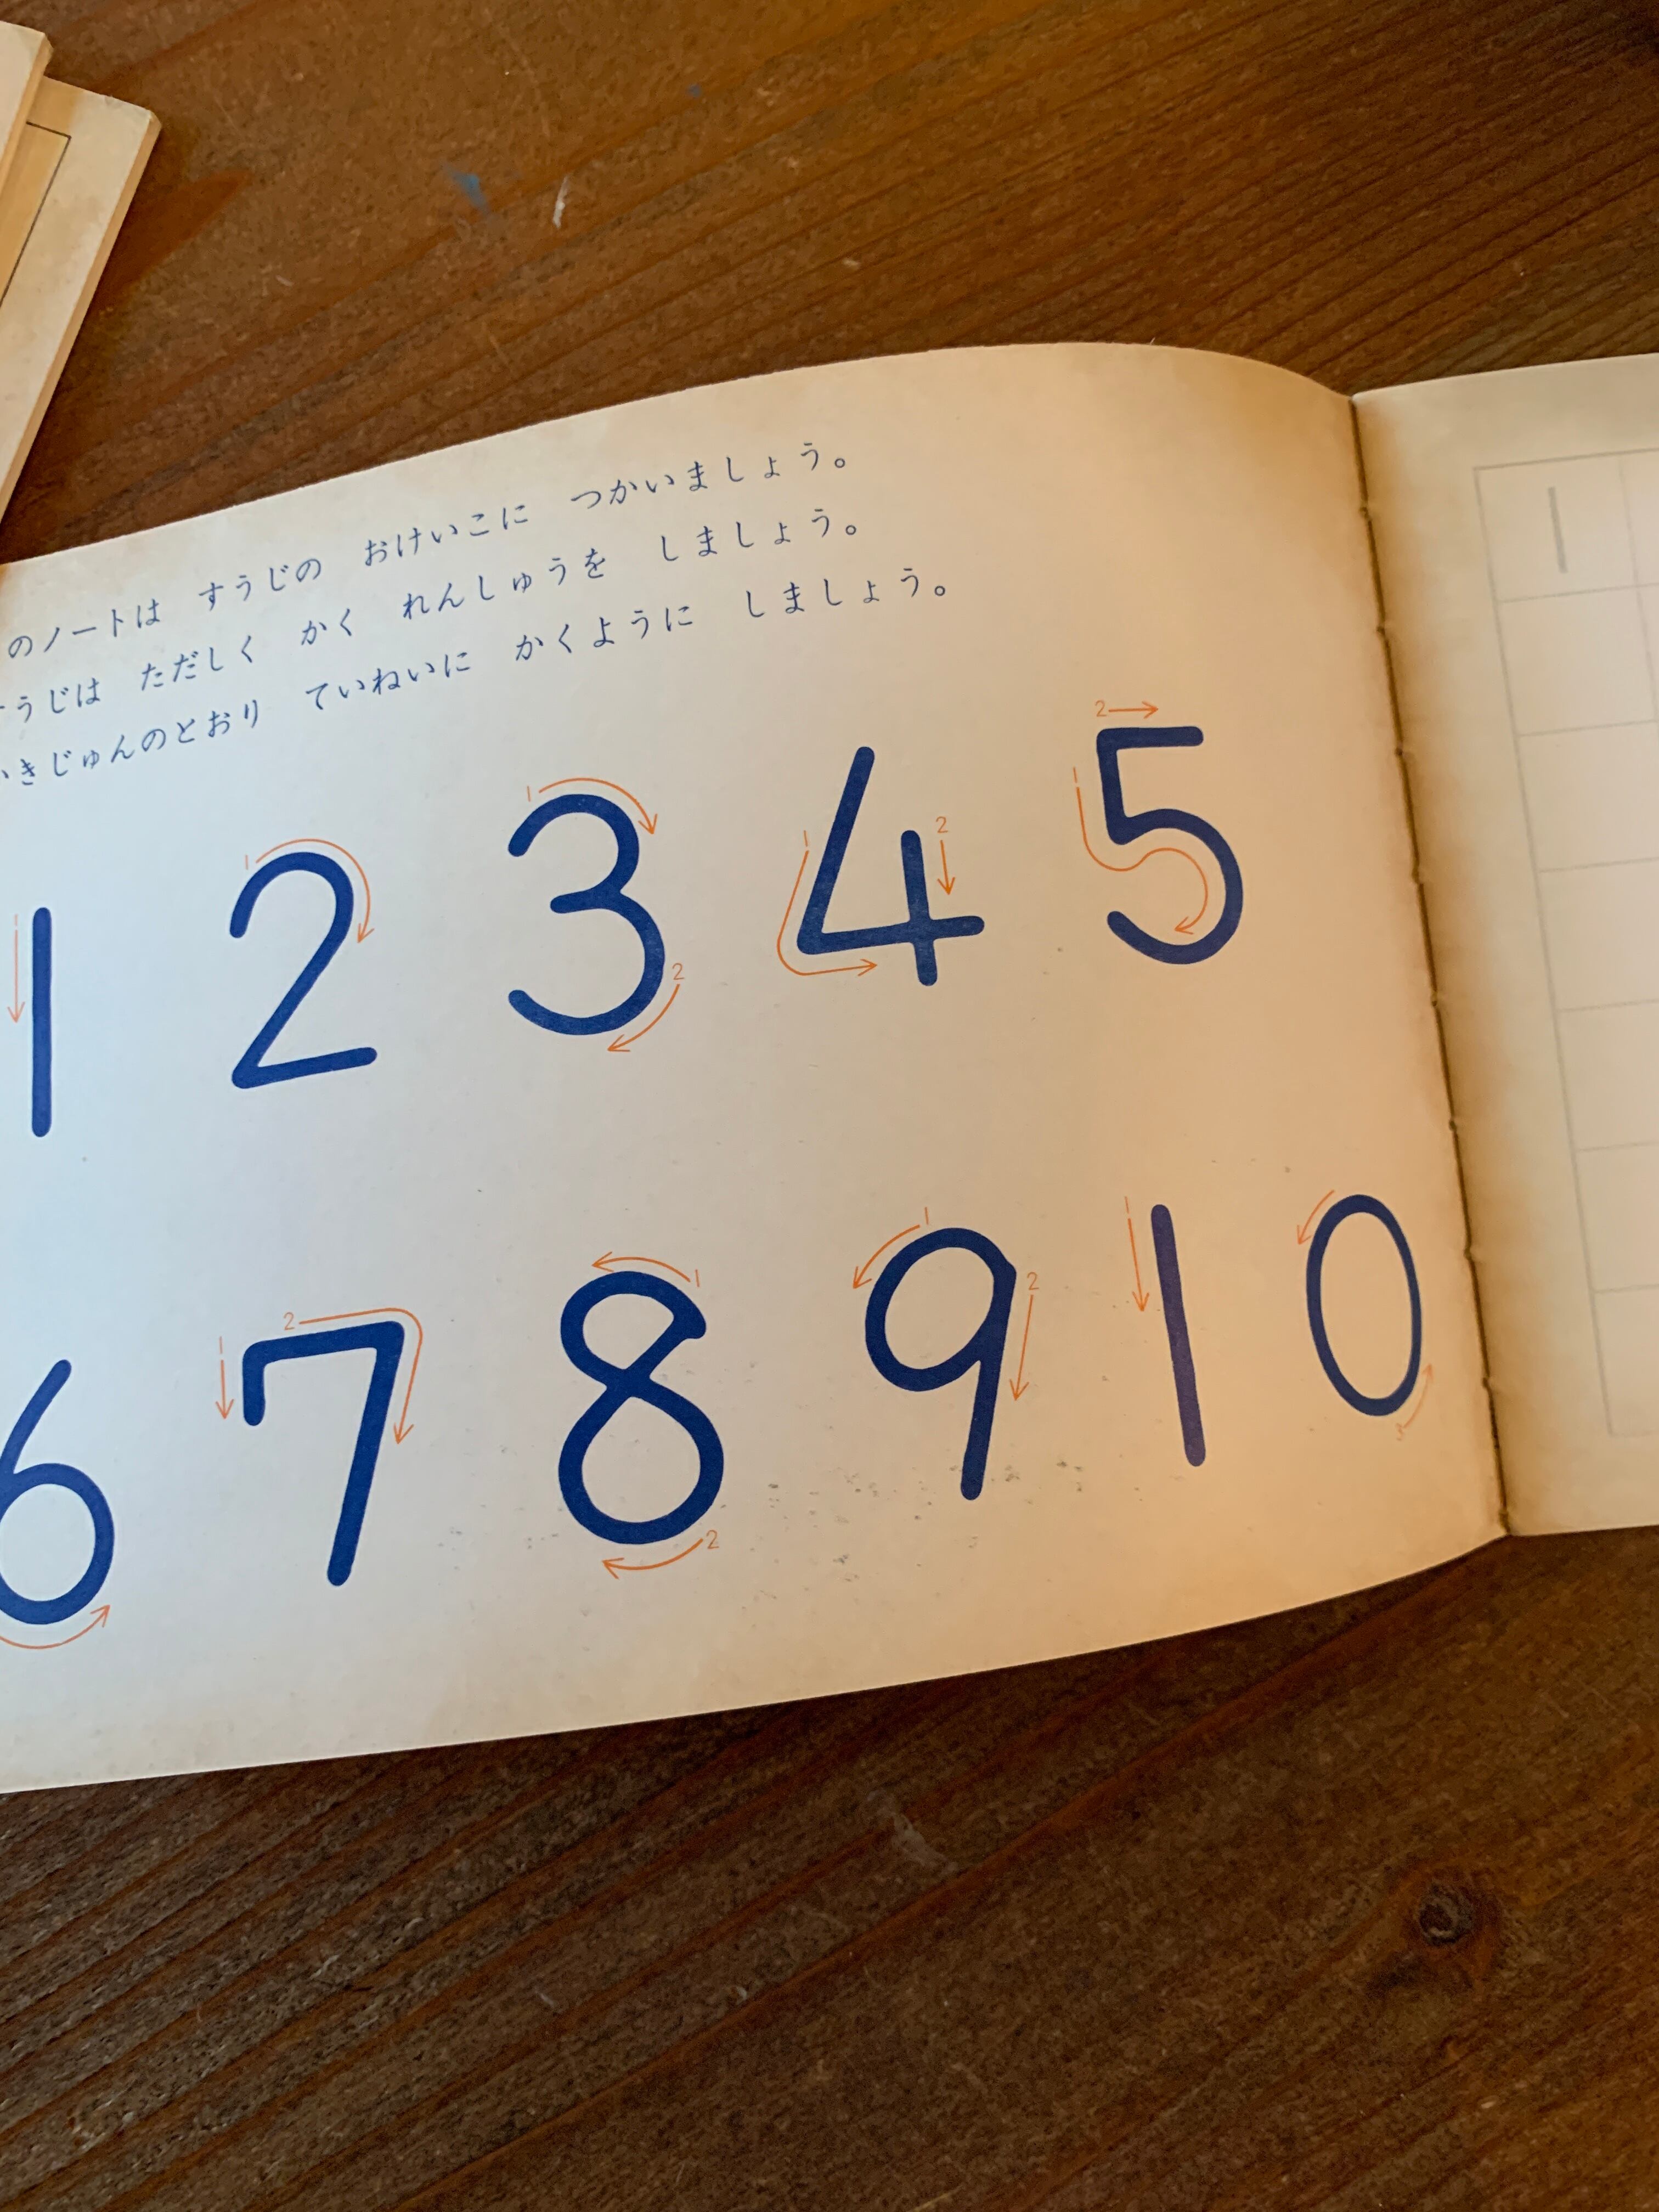 のノートは　すうじの　おけいこに　つかいましょう。
うじは　ただしく　かく　れんしゅうを　しましょう。
きじゅんのとおり　ていねいに　かくように　しましょう。
1 2 3 4 5
6 7 8 9 10
1